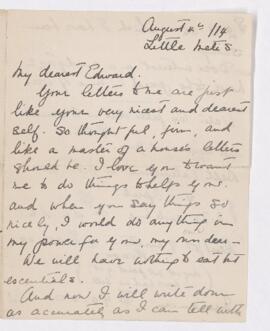 August 4th /14
Little Metis
My dearest Edward.
Your letters to me are just
like your very nicest and dearest
self. So thoughtful, firm, and
like a master of a house's letters
should be. I love you to want
me to do things to help you.
and when you say things so
nicely, I would do anything in
my power for you, my own dear—
We will have nothing to eat but
escentials.
And now I will write down
as accurately as I can tell with